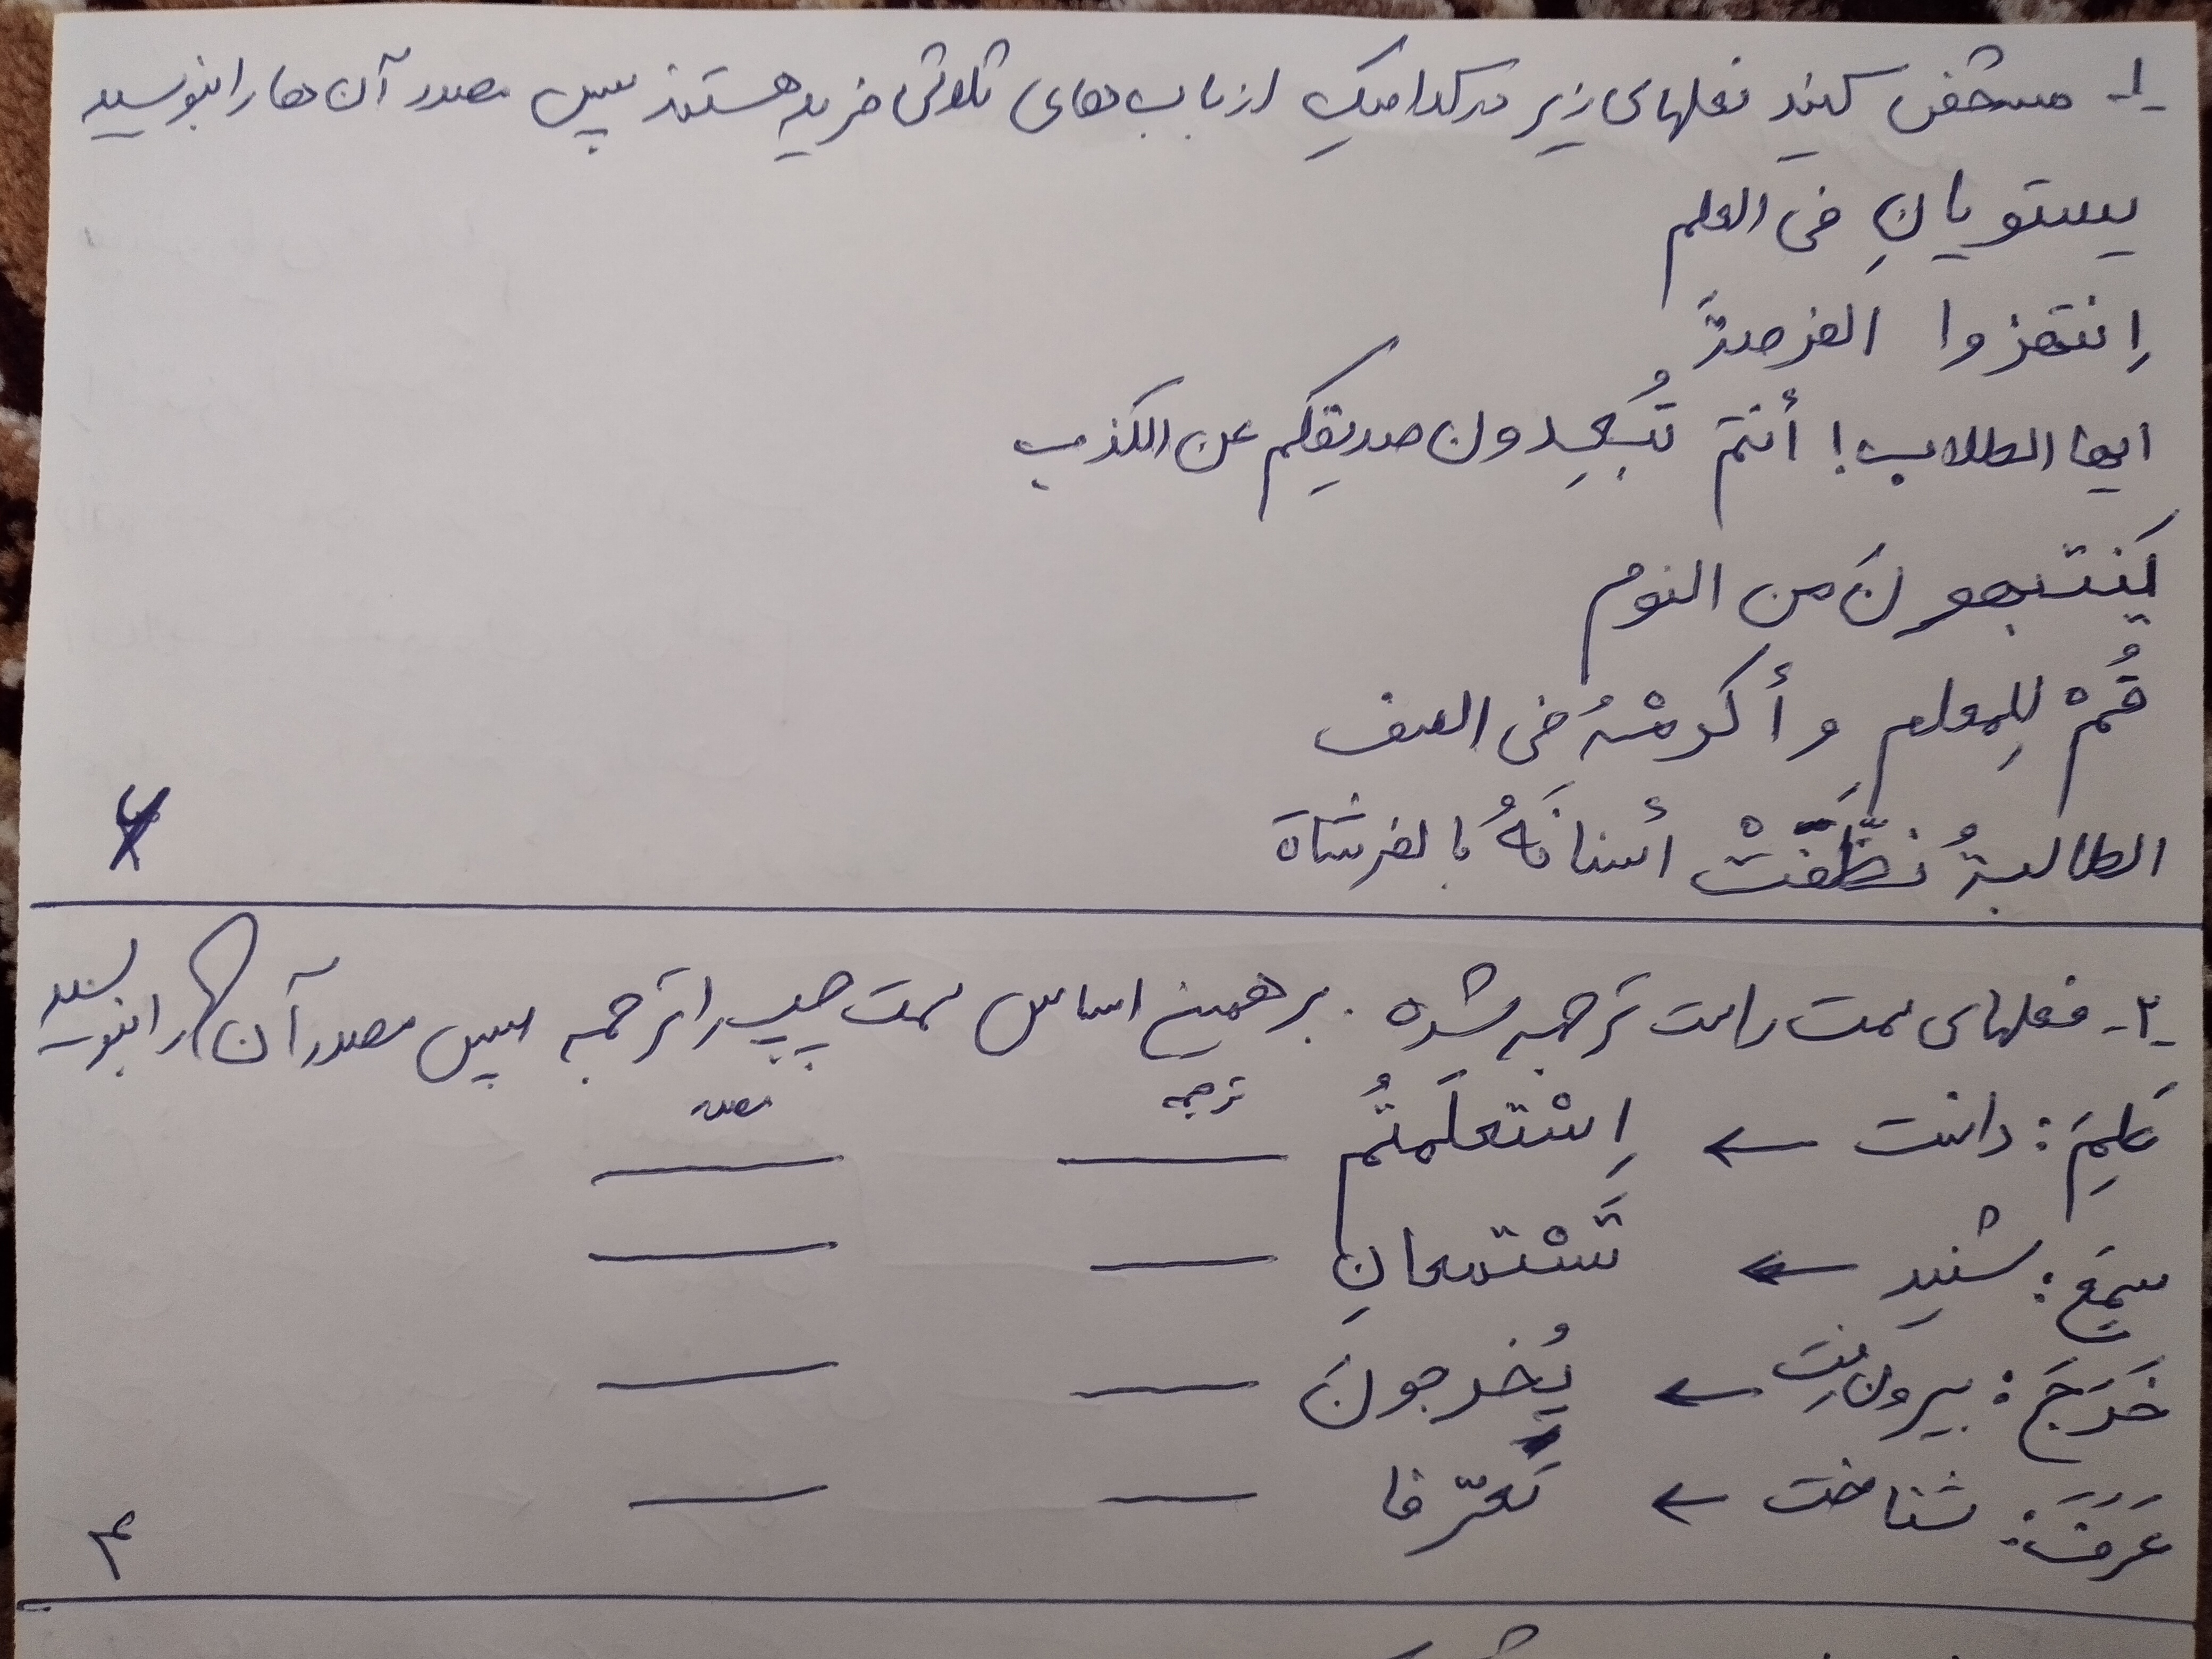 ۱- مشخص کنید فعلهای زیر در کدامیک از باب‌های ثلاثی مزید هستند سپس مصدر آن ها را بنویسید
یستویانِ فی العلم
اِنتهزوا الفرصةَ
ایها الطلاب! أنتم تُبعِدون صدیقکم عن الکذب
یَنتبهونَ من النوم
قُمْ لِلمعلم و أکرِمْهُ فی الصف
الطالبةُ نظَّفَتْ أسنانَهُ بالفرشاة
۶
۲- فعلهای سمت راست ترجمه شده . بر همین اساس سمت چپ را ترجمه سپس مصدر آن را بنویسید
ترجمه مصدر
عَلِمَ : دانست ← اِسْتعلَمتُم
سَمِعَ : شنید ← تَسْتمعانِ
خَرَجَ : بیرون رفت ← یُخرجونَ
عَرَفَ : شناخت ← تَعرّفا
۴